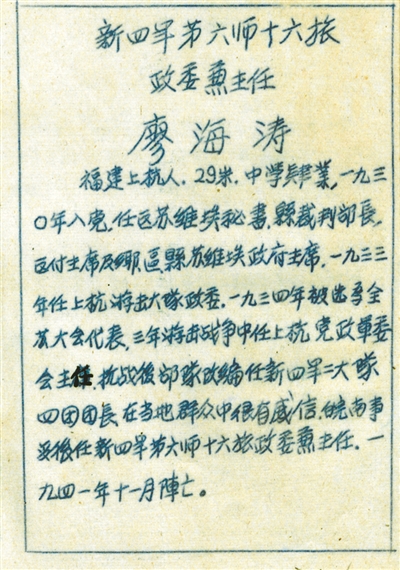 新四军第六师十六旅
政委兼主任
廖海涛
福建上杭人.29岁.中学毕業,一九三
〇年入党.任区苏維埃秘書.縣裁判部長,
区付主席及鄉.區縣苏維埃政府主席.一九三三
年任上杭游击大隊政委.一九三四年被选为全
苏大会代表.三年游击战争中任上杭党政軍委
会主任.抗战後部隊改编任新四军二大隊
四团团長.在当地群众中很有威信.皖南事
变後任新四军第六师十六旅政委兼主任.一
九四一年十一月陣亡。